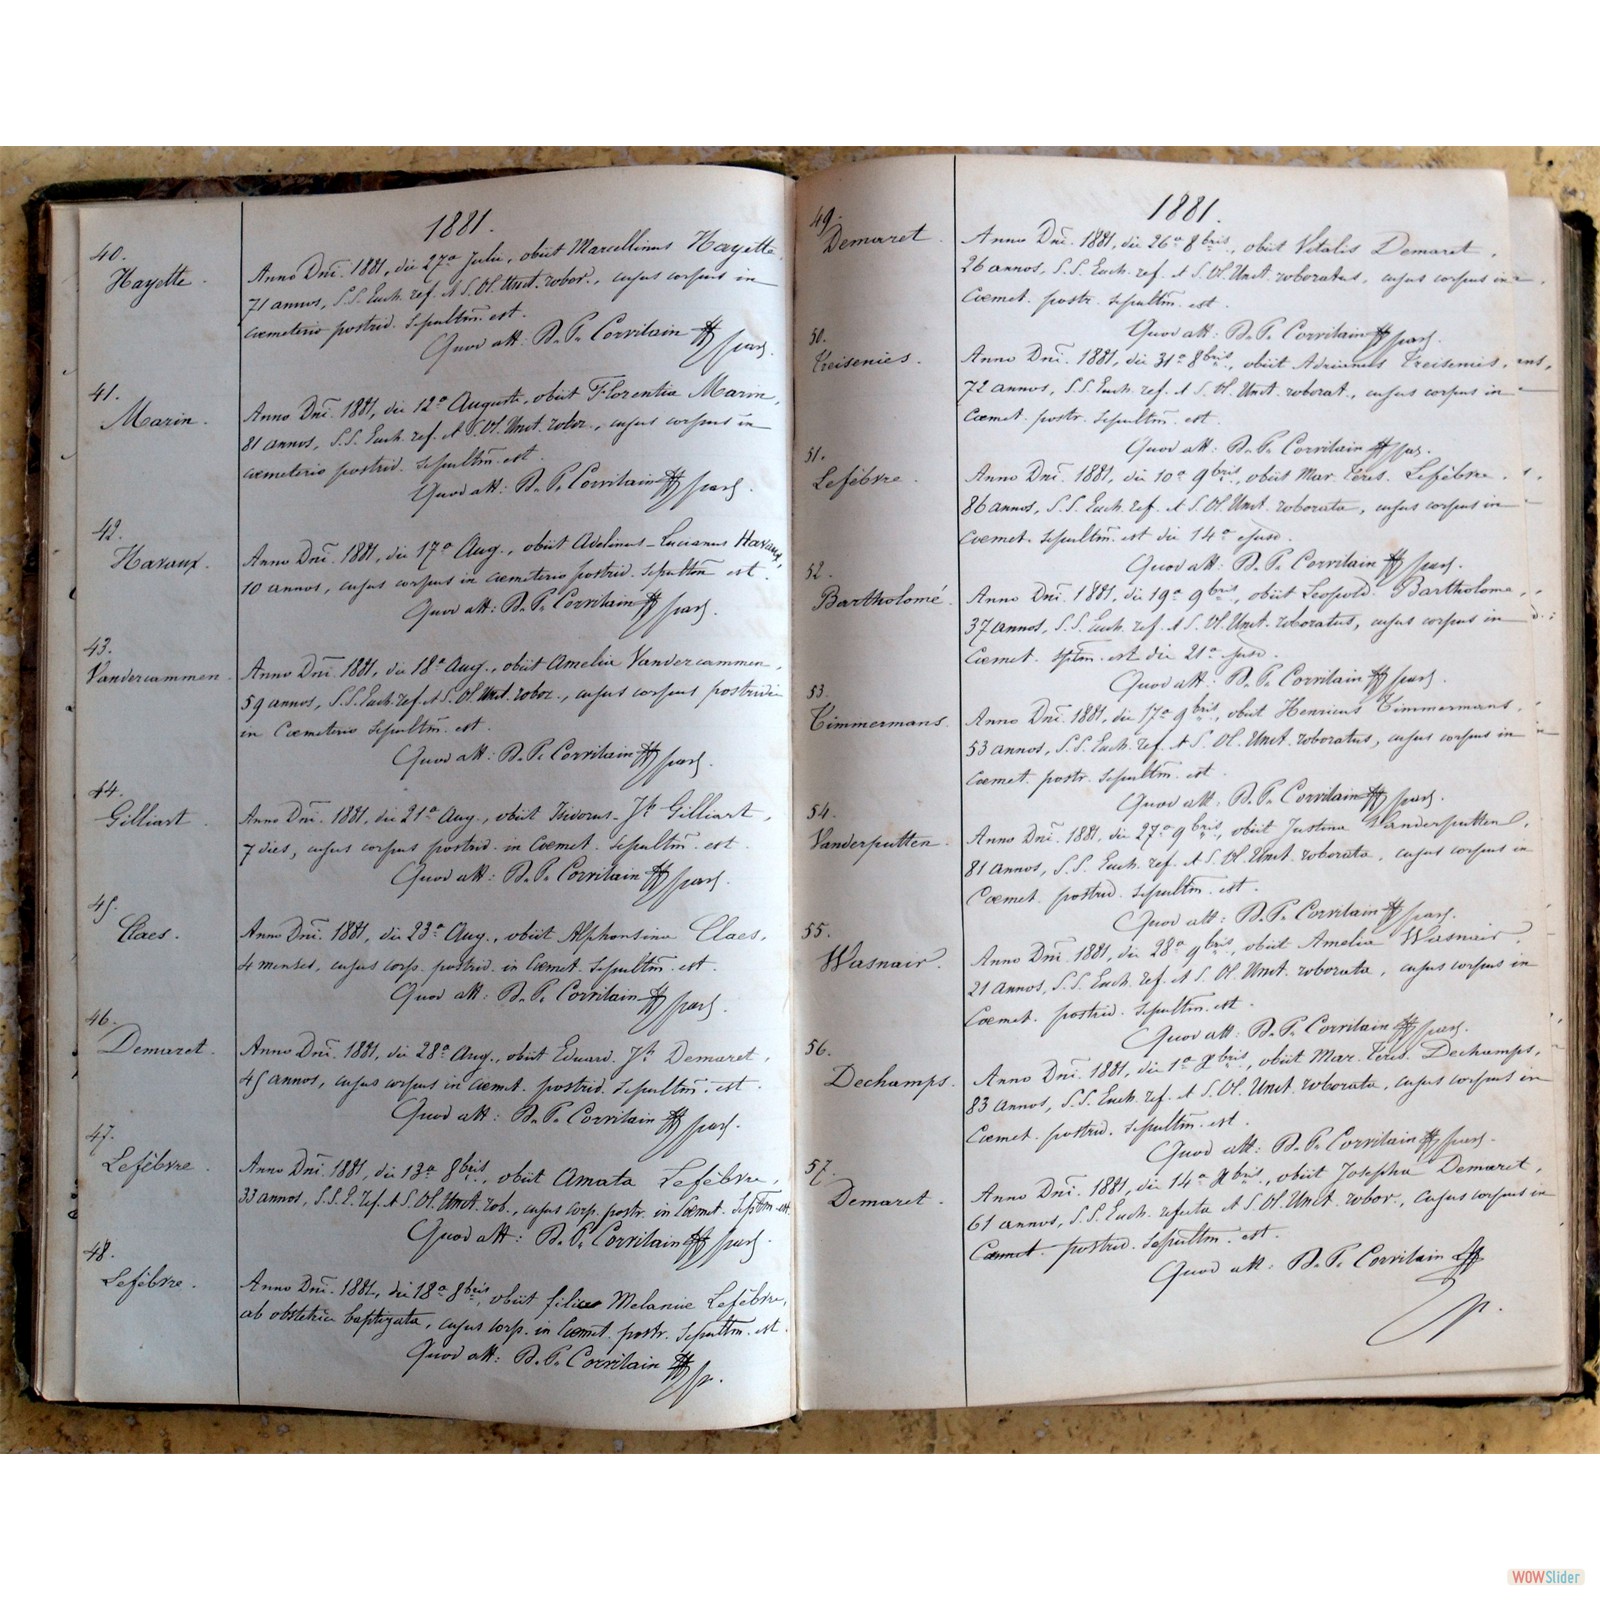 1881.
40.
Hayette.
Anno Dnī. 1881, die 27ª Julii, obiit Marcellinus Hayette,
71 annos, S.S. Euch. ref. et S. Ol. Unct. robor., cujus corpus in
cœmeterio postrid. sepultm̄. est.
Quod att: B. P. Corvilain
41.
Marin.
Anno Dnī. 1881, die 12ª Augusti, obiit Florentia Marin,
81 annos, S.S. Euch. ref. et S. Ol. Unct. robor., cujus corpus in
cœmeterio postrid. sepultm̄. est.
Quod att: B. P. Corvilain
42.
Havaux.
Anno Dnī. 1881, die 17ª Aug., obiit Adelinus-Lucianus Havaux,
10 annos, cujus corpus in cœmeterio postrid. sepultm̄ est.
Quod att: B. P. Corvilain
43.
Vandercammen.
Anno Dnī. 1881, die 18ª Aug., obiit Amelia Vandercammen,
59 annos, S.S. Euch. ref. et S. Ol. Unct. robor., cujus corpus postridie
in Cœmeterio sepultm̄. est.
Quod att: B. P. Corvilain
44.
Gilliart.
Anno Dnī. 1881, die 21ª Aug., obiit Jph Gilliart,
7 dies, cujus corpus postrid. in Cœmet. sepultm̄. est.
Quod att: B. P. Corvilain
45.
Claes.
Anno Dnī. 1881, die 23ª Aug., obiit Alphonsina Claes,
4 menses, cujus corp. postrid. in Cœmet. sepultm̄. est.
Quod att: B. P. Corvilain
46.
Demaret.
Anno Dnī. 1881, die 28ª Aug., obiit Eduard. Jph Demaret,
45 annos, cujus corpus in cœmet. postrid. sepultm̄. est.
Quod att: B. P. Corvilain
47.
Lefèbvre.
Anno Dnī. 1881, die 13ª 8bris, obiit Amata Lefèbvre,
33 annos, S.S. E. ref. et S. Ol. Unct. rob., cujus corp. postr. in Cœmet. septm̄. est.
Quod att: B. P. Corvilain
48.
Lefèbvre.
Anno Dnī. 1881, die 18ª 8bris, obiit filia Melaniæ Lefèbvre,
ab obstetrice baptizata, cujus corp. in Cœmet. postr. sepultm̄. est.
Quod att: B. P. Corvilain
1881.
49.
Demaret.
Anno Dnī. 1881, die 26ª 8bris, obiit Vitalis Demaret,
26 annos, S.S. Euch. ref. et S. Ol. Unct. roboratus, cujus corpus in
Cœmet. postr. sepultm̄. est.
Quod att: B. P. Corvilain
50.
Treisenies.
Anno Dnī. 1881, die 31ª 8bris, obiit Adrianus Treisenies,
72 annos, S.S. Euch. ref. et S. Ol. Unct. roborat., cujus corpus in
Cœmet. postr. sepultm̄. est.
Quod att: B. P. Corvilain
51.
Lefèbvre.
Anno Dnī. 1881, die 10ª 9bris, obiit Mar. Teres. Lefèbvre,
86 annos, S.S. Euch. ref. et S. Ol. Unct. roborata, cujus corpus in
Cœmet. sepultm̄. est die 14ª ejusd.
Quod att: B. P. Corvilain
52.
Bartholomé.
Anno Dnī. 1881, die 19ª 9bris, obiit Leopold. Bartholomé,
37 annos, S.S. Euch. ref. et S. Ol. Unct. roboratus, cujus corpus in
Cœmet. sptm̄. est die 21ª ejusd.
Quod att: B. P. Corvilain
53.
Timmermans.
Anno Dnī. 1881, die 17ª 9bris, obiit Henricus Timmermans,
53 annos, S.S. Euch. ref. et S. Ol. Unct. roboratus, cujus corpus in
Cœmet. postr. sepultm̄. est.
Quod att: B. P. Corvilain
54.
Vanderputten.
Anno Dnī. 1881, die 27ª 9bris, obiit Justina Vanderputten,
81 annos, S.S. Euch. ref. et S. Ol. Unct. roborata, cujus corpus in
Cœmet. postrid. sepultm̄. est.
Quod att: B. P. Corvilain
55.
Wasnair.
Anno Dnī. 1881, die 28ª 9bris, obiit Amelia Wasnair,
21 annos, S.S. Euch. ref. et S. Ol. Unct. roborata, cujus corpus in
Cœmet. postrid. sepultm̄. est.
Quod att: B. P. Corvilain
56.
Dechamps.
Anno Dnī. 1881, die 1ª Xbris, obiit Mar. Teres. Dechamps,
83 annos, S.S. Euch. ref. et S. Ol. Unct. roborata, cujus corpus in
Cœmet. postrid. sepultm̄. est.
Quod att: B. P. Corvilain
57.
Demaret.
Anno Dnī. 1881, die 14ª Xbris, obiit Josepha Demaret,
61 annos, S.S. Euch. refecta et S. Ol. Unct. robor., cujus corpus in
Cœmet. postrid. sepultm̄. est.
Quod att: B. P. Corvilain
WOWSlider